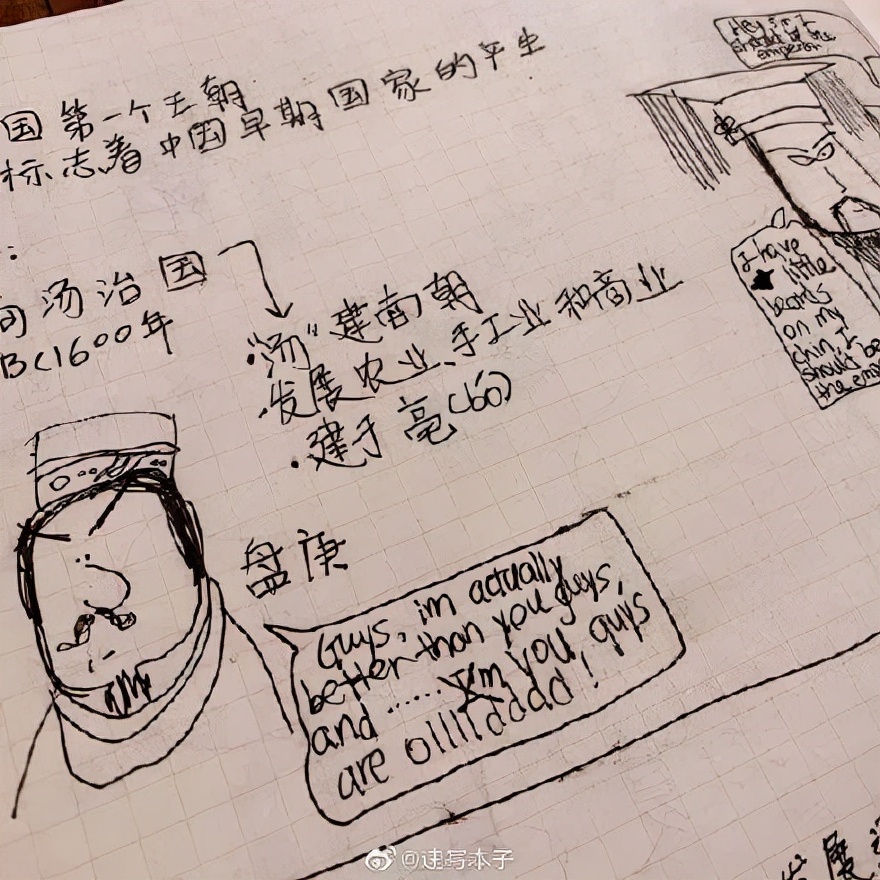 国第一个王朝
标志着中国早期国家的产生
Hey sir, I
should be the
emperor
I have
little
beards
on my
chin, I
should be
the emp
汤治国
BC1600年
"汤"建商朝
·发展农业、手工业和商业
·建于亳(bó)
盘庚
Guys, im actually
better than you guys,
and ...... I'm you guys
are ollllldddd!
发展
@速写本子